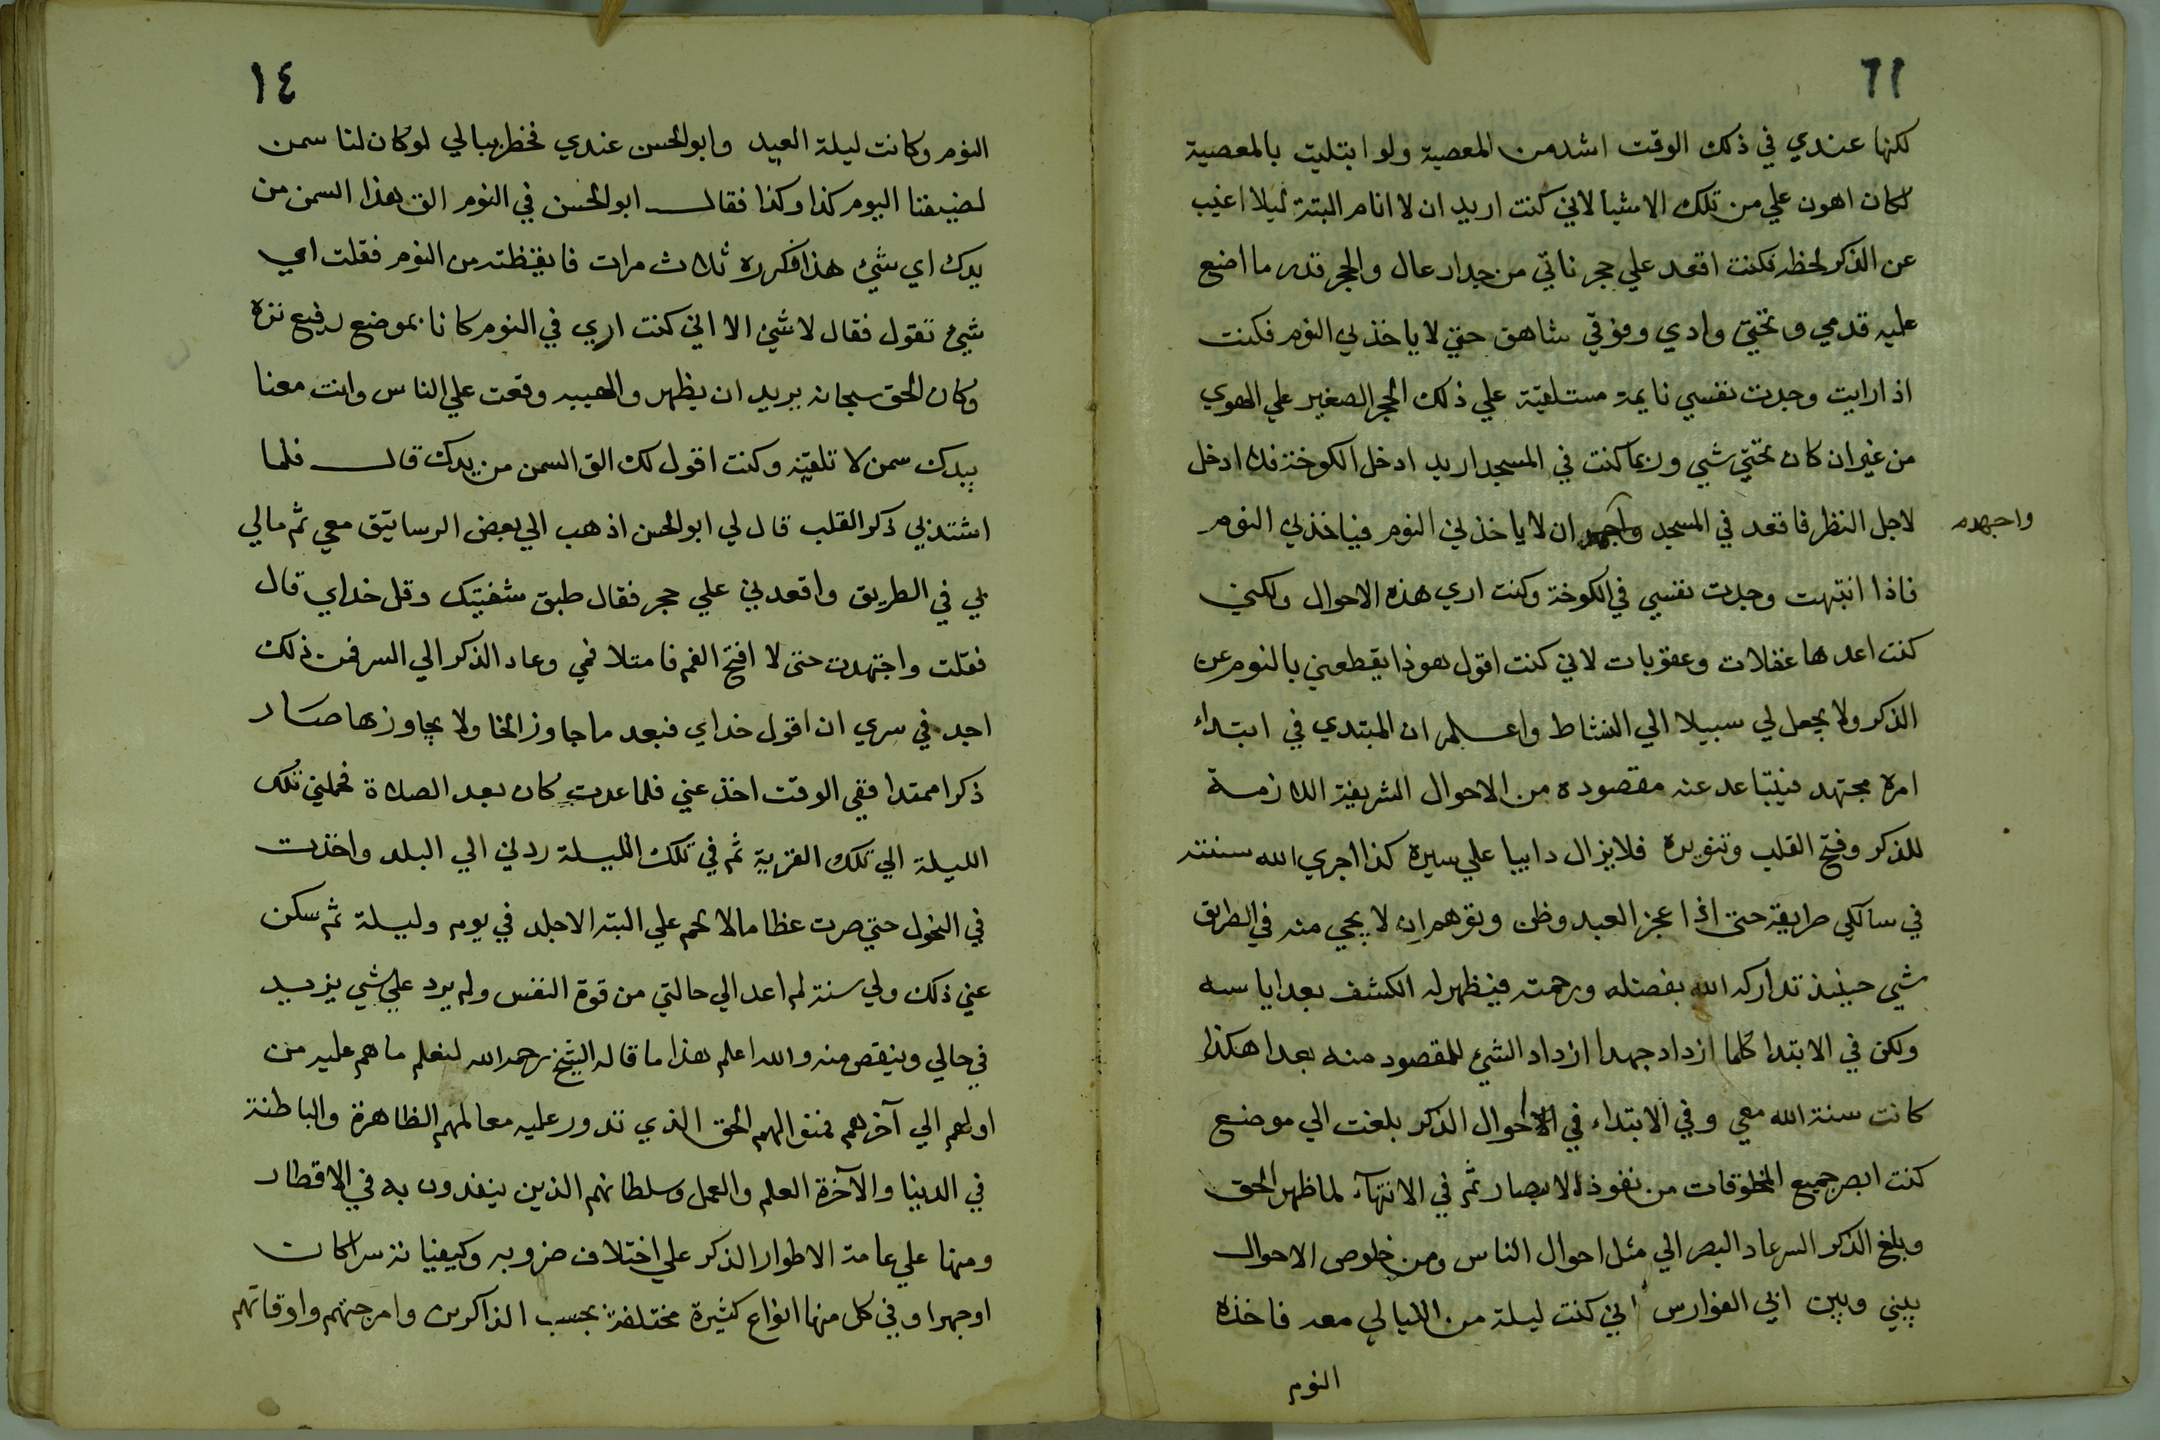 ٦١
لكنها عندي في ذلك الوقت اشد من المعصية ولو ابتليت بالمعصية
لكان اهون علي من تلك الاشيا لاني كنت اريد ان لا انام البتة ليلا اغيب
عن الذكر لحظه فكنت اقعد علي حجر ناتي من جدار عال والحجر قدر ما اضع
عليه قدمي وتحتي وادي وفوقي شاهق حتي لا ياخذني النوم فكنت
اذا رايت وجدت نفسي نايمة مستلقية علي ذلك الحجر الصغير علي الهوي
من غير ان كان تحتي شي وربما كنت في المسجد اريد ادخل الكوخة فلا ادخل
لاجل النظر فاقعد في المسجد واجهد ان لا ياخذني النوم فياخذني النوم
واجهده
فاذا انتبهت وجدت نفسي في الكوخة وكنت اري هذه الاحوال ولكني
كنت اعدها غفلات وعقوبات لاني كنت اقول هوذا يقطعني بالنوم عن
الذكر ولا يجعل لي سبيلا الي النشاط واعلم ان المبتدي في ابتداء
امره مجتهد فيتباعد عنه مقصوده من الاحوال الشريفة اللازمة
للذكر وفتح القلب وتنويره فلا يزال دايبا علي سيره كذا اجري الله سنته
في سالكي طريقة حتي اذا عجز العبد وظن وتوهم ان لا يجي منه في الطريق
شي حينيذ تداركه الله بفضله ورحمته فيظهر له الكشف بعد اياسه
ولكن في الابتدا كلما ازداد جهدا ازداد الشيء للمقصود منه بعدا هكذا
كانت سنة الله معي وفي الابتداء في الاحوال الذكر بلغت الي موضع
كنت ابصر جميع المخلوقات من نفوذ الابصار ثم في الانتهآء لما ظهر الحق
وبلغ الذكر السر عاد البصر الي مثل احوال الناس ومن خلوص الاحوال
بيني وبين ابي الفوارس اني كنت ليلة من الليالي معه فاخذه
النوم
١٤
النوم وكانت ليلة العيد وابو الحسن عندي فخطر ببالي لو كان لنا سمن
لضيفنا اليوم كذا وكذا فقال ابو الحسن في النوم الق هذا السمن من
يدك اي شيء هذا فكرره ثلاث مرات فايقظته من النوم فقلت اي
شيء تقول فقال لا شيء الا اني كنت اري في النوم كانا بموضع رفيع نزه
وكان الحق سبحانه يريد ان يظهر والهيبه وقعت علي الناس وانت معنا
بيدك سمن لا تلقيه وكنت اقول لك الق السمن من يدك قال فلما
اشتد بي ذكر القلب قال لي ابو الحسن اذهب الي بعض الرساتيق معي ثم مالي
بي في الطريق واقعدني علي حجر فقال طبق شفتيك وقل خداي قال
فقلت واجتهدت حتي لا افتح الفم فامتلا فمي وعاد الذكر الي السر فمن ذلك
اجد في سري ان اقول خداي فبعد ما جاوز الخا ولا يجاوزها صار
ذكرا ممتدا ففي الوقت اخذ عني فلما عدت كان بعد الصلاة فحملني تلك
الليلة الي تلك القرية ثم في تلك الليلة ردني الي البلد واخذت
في النحول حتي صرت عظاما لا لحم علي البته الا جلد في يوم وليلة ثم سكن
عني ذلك ولي سنة لم اعد الي حالتي من قوة النفس ولم يرد علي شي يزيد
في حالي وينقص منه والله اعلم هذا ما قاله الشيخ رحمه الله لنعلم ما هم عليه من
اولهم الي آخرهم فمنوالهم الحق الذي تدور عليه معالمهم الظاهرة والباطنة
في الدنيا والآخرة العلم والعمل وسلطانهم الذين ينفذون به في الاقطار
ومنها علي عامة الاطوار الذكر علي اختلاف ضروبه وكيفياته سرا كان
او جهرا وفي كل منها انواع كثيرة مختلفة بحسب الذاكرين وامزجتهم واوقاتهم